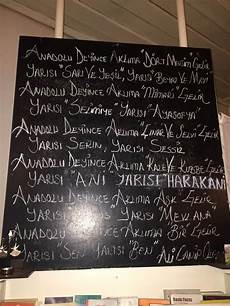 Anadolu Deyince Aklıma "Dört Mevsim" Gelir
Yarısı "Sarı Ve Yeşil", Yarısı "Beyaz Ve Mavi
Anadolu Deyince Aklıma "Mimari" Gelir
Yarısı "Selimiye" Yarısı "Ayasofya"
Anadolu Deyince Aklıma Çınar Ve Gelir
Yarısı Serin, Yarısı Sessiz
Anadolu Deyince Aklıma Kale Ve Kubbe Gelir
Yarısı "Ani" Yarısı Harakani
Anadolu Deyince Aklıma Aşk Gelir
Yarısı Yunus Yarısı Mevlana
Anadolu Deyince Aklıma Bir Gelir
Yarısı "Sen" Yarısı "Ben"